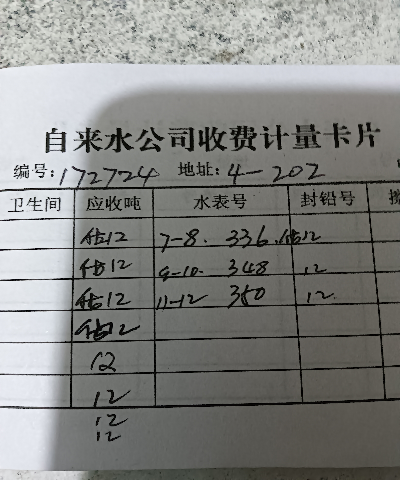 自来水公司收费计量卡片
编号:172724 地址:4-202
卫生间 应收吨 水表号 封铅号
估12 7-8. 336. 估12
估12 9-10. 348 12
估12 11-12 360 12
估12
12
12
12
12